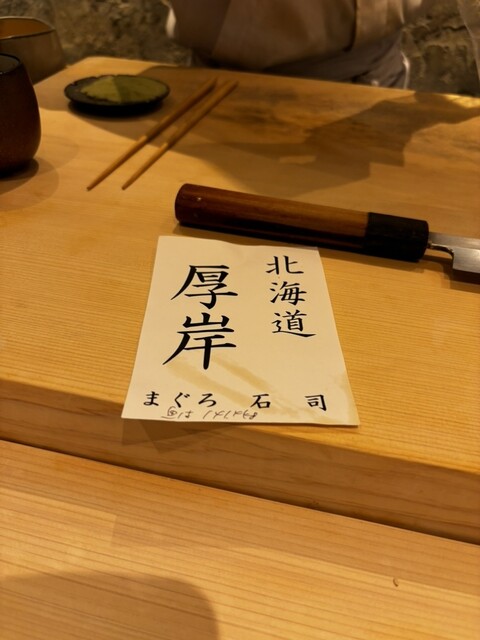 北海道
厚岸
まぐろ 石司